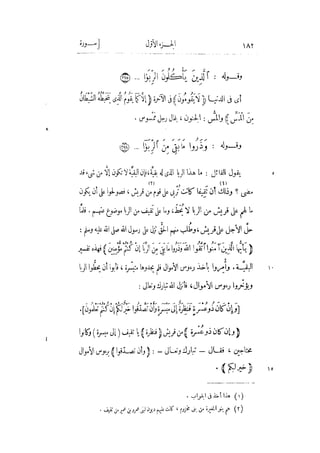 ١٨٢ الجزء الأول [ سورة
وقوله : ﴿الَّذِينَ يَأْكُلُونَ الرِّبَوٰا ... (٢٧٥)﴾
أى فى الدنيا ﴿لَا يَقُومُونَ﴾ فى الآخرة ﴿إِلَّا كَمَا يَقُومُ الَّذِى يَتَخَبَّطُهُ الشَّيْطَانُ
مِنَ الْمَسِّ﴾ والمسّ : الجنون ، يقال رجل ممسوس .
وقوله : ﴿وَذَرُوا مَا بَقِىَ مِنَ الرِّبَوٰا ... (٢٧٨)﴾
يقول القائل : ما هذا الربا الذى له بقيّة ، فإن البقيّة لا تكون إلّا من شىء قد
مضى ؟ وذلك أن ثقيفا كانت تُربى على قوم من قريش ، فصولحوا على أن يكون
ما لهم على قريش من الربا لا يُحَطّ ، وما على ثقيف من الربا موضوع عنهم . فلمّا
حلّ الأجل على قريش ، وطلب منهم الحق نزل على رسول الله صلى الله عليه وسلم :
﴿يَأَيُّهَا الَّذِينَ آمَنُوا اتَّقُوا اللهَ وَذَرُوا مَا بَقِىَ مِنَ الرِّبَا إِنْ كُنْتُمْ مُؤْمِنِينَ﴾ فهذه تفسير
البقيّة . وأمروا بأخذ رءوس الأموال فلم يجدوها متيسّرة ، فأبوا أن يحطّوا الربا
ويؤخّروا رءوس الأموال ، فأنزل الله تبارك وتعالى :
﴿وَإِنْ كَانَ ذُو عُسْرَةٍ فَنَظِرَةٌ إِلَى مَيْسَرَةٍ وَأَنْ تَصَدَّقُوا خَيْرٌ لَكُمْ إِنْ كُنْتُمْ تَعْلَمُونَ﴾ .
﴿وإن كان ذو عسرة﴾ من قريش ﴿فنظرة﴾ يا ثقيف ﴿إلى ميسرة﴾ وكانوا
محتاجين ، فقال – تبارك وتعالى – : ﴿وأن تصدّقوا﴾ برءوس الأموال
﴿خير لكم﴾ .
(١) هذا أخذ فى الجواب .
(٢) هم بنو المغيرة من بنى مخزوم ، كانت عليهم ديون لبنى عمرو بن عمير من ثقيف .